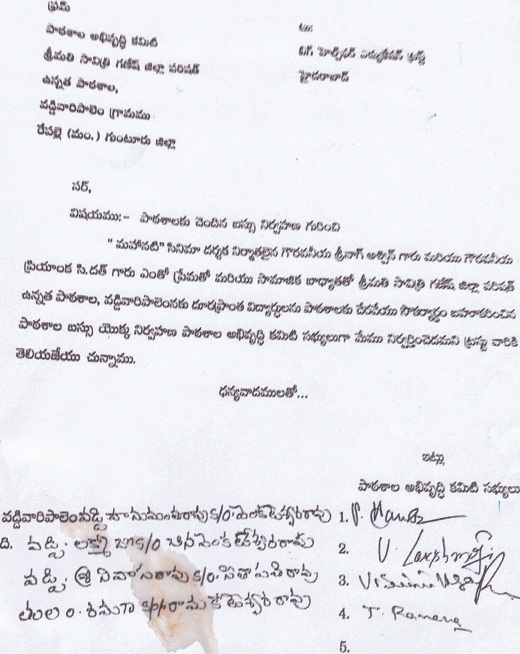 ఫ్రమ్
పాఠశాల అభివృద్ధి కమిటీ
శ్రీమతి సావిత్రి గణేష్ జిల్లా పరిషత్
ఉన్నత పాఠశాల,
వడ్డివారిపాలెం గ్రామము
రేపల్లె (మం.) గుంటూరు జిల్లా
టు
ఎడ్యుకేషన్ ట్రస్ట్
హైదరాబాద్
సర్,
విషయము:- పాఠశాలకు చెందిన బస్సు నిర్వహణ గురించి
" మహానటి" సినిమా దర్శక నిర్మాతలైన గౌరవనీయ శ్రీనాగ్ అశ్విన్ గారు మరియు గౌరవనీయ
ప్రియాంక సి.దత్ గారు ఎంతో ప్రేమతో మరియు సామాజిక బాధ్యతతో శ్రీమతి సావిత్రి గణేష్ జిల్లా పరిషత్
ఉన్నత పాఠశాల, వడ్డివారిపాలెంనకు దూరప్రాంత విద్యార్థులను పాఠశాలకు చేరవేయు సౌకర్యార్థం బహూకరించిన
పాఠశాల బస్సు యొక్క నిర్వహణ పాఠశాల అభివృద్ధి కమిటి సభ్యులుగా మేము నిర్వర్తించెదమని ట్రస్టు వారికి
తెలియజేయు చున్నాము.
ధన్యవాదములతో...
ఇట్లు,
పాఠశాల అభివృద్ధి కమిటీ సభ్యులు
వడ్డివారిపాలెం S/O వెంకటేశ్వరరావు 1.
ది. వడ్డి. లక్ష్మీ S/O చినవెంకటేశ్వరరావు 2. V. Lakshmoji
వడ్డి. శ్రీనివాసరావు S/O. సీతాపతిరావు 3.
తుల రామకోటేశ్వరరావు 4. T. Ramana
5.